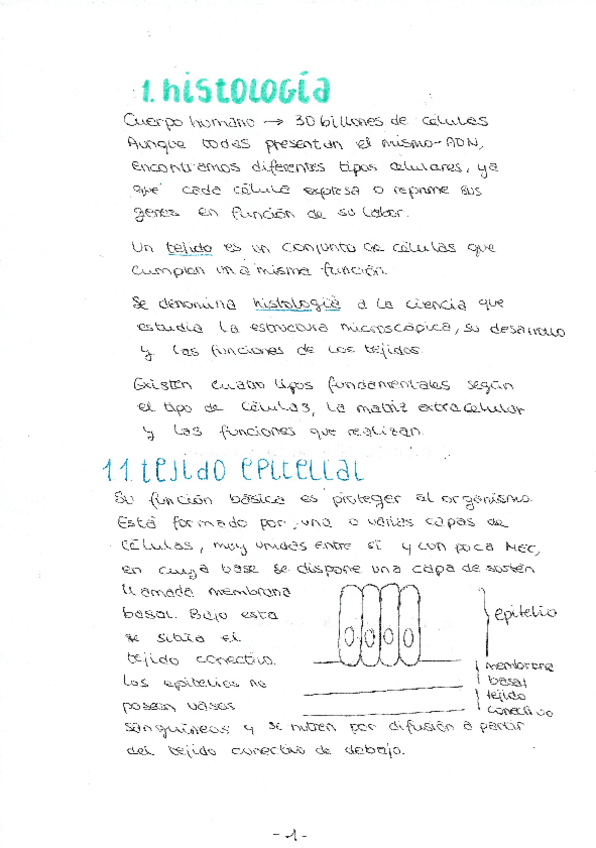 1. histología
Cuerpo humano → 30 billones de células
Aunque todas presentan el mismo ADN,
encontramos diferentes tipos celulares, ya
que cada célula expresa o reprime sus
genes en función de su labor.
Un tejido es un conjunto de células que
cumplen una misma función.
Se denomina histología a la ciencia que
estudia la estructura microscópica, su desarrollo
y las funciones de los tejidos.
Existen cuatro tipos fundamentales según
el tipo de células, la matriz extracelular
y las funciones que realizan.
1.1. tejido epitelial
Su función básica es proteger al organismo.
Está formado por una o varias capas de
células, muy unidas entre sí y con poca MEC,
en cuya base se dispone una capa de sostén
llamada membrana
basal. Bajo esta
se sitúa el
tejido conectivo.
Los epitelios no
poseen vasos
sanguíneos y se nutren por difusión a partir
del tejido conectivo de debajo.
epitelio
membrana
basal
tejido
conectivo
-1-